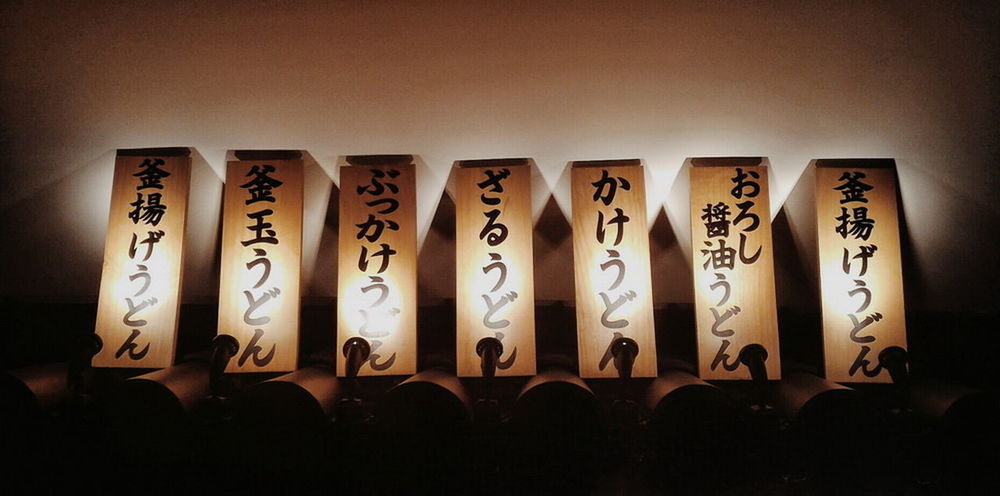 釜揚げうどん
釜玉うどん
ぶっかけうどん
ざるうどん
かけうどん
おろし
醤油うどん
釜揚げうどん